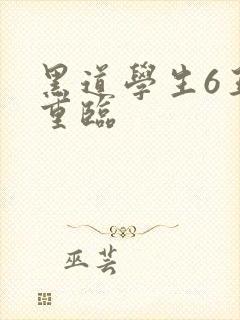 黑道學生6王
重臨
巫芸